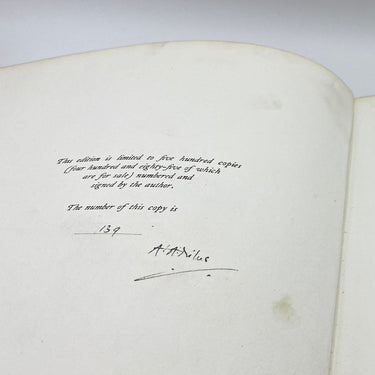 This edition is limited to five hundred copies
(four hundred and eighty-five of which
are for sale) numbered and
signed by the author.
The number of this copy is
139
A.A.Milne